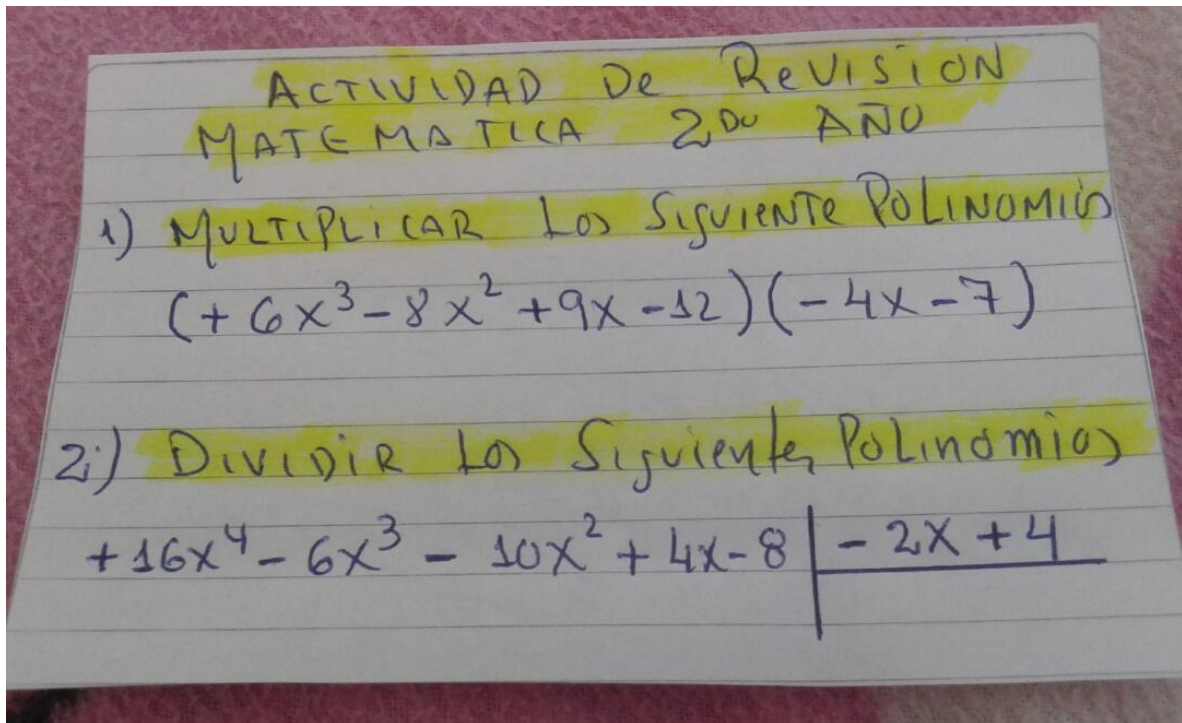 ACTIVIDAD De ReVISION
MATEMATICA 2DO AÑO
1) MULTIPLICAR Los SIGUIENTE POLINOMIOS
(+6x³-8x²+9x-12)(-4x-7)
2) DIVIDIR Los Siguientes Polinomios
+16x⁴-6x³-10x²+4x-8 | -2x+4